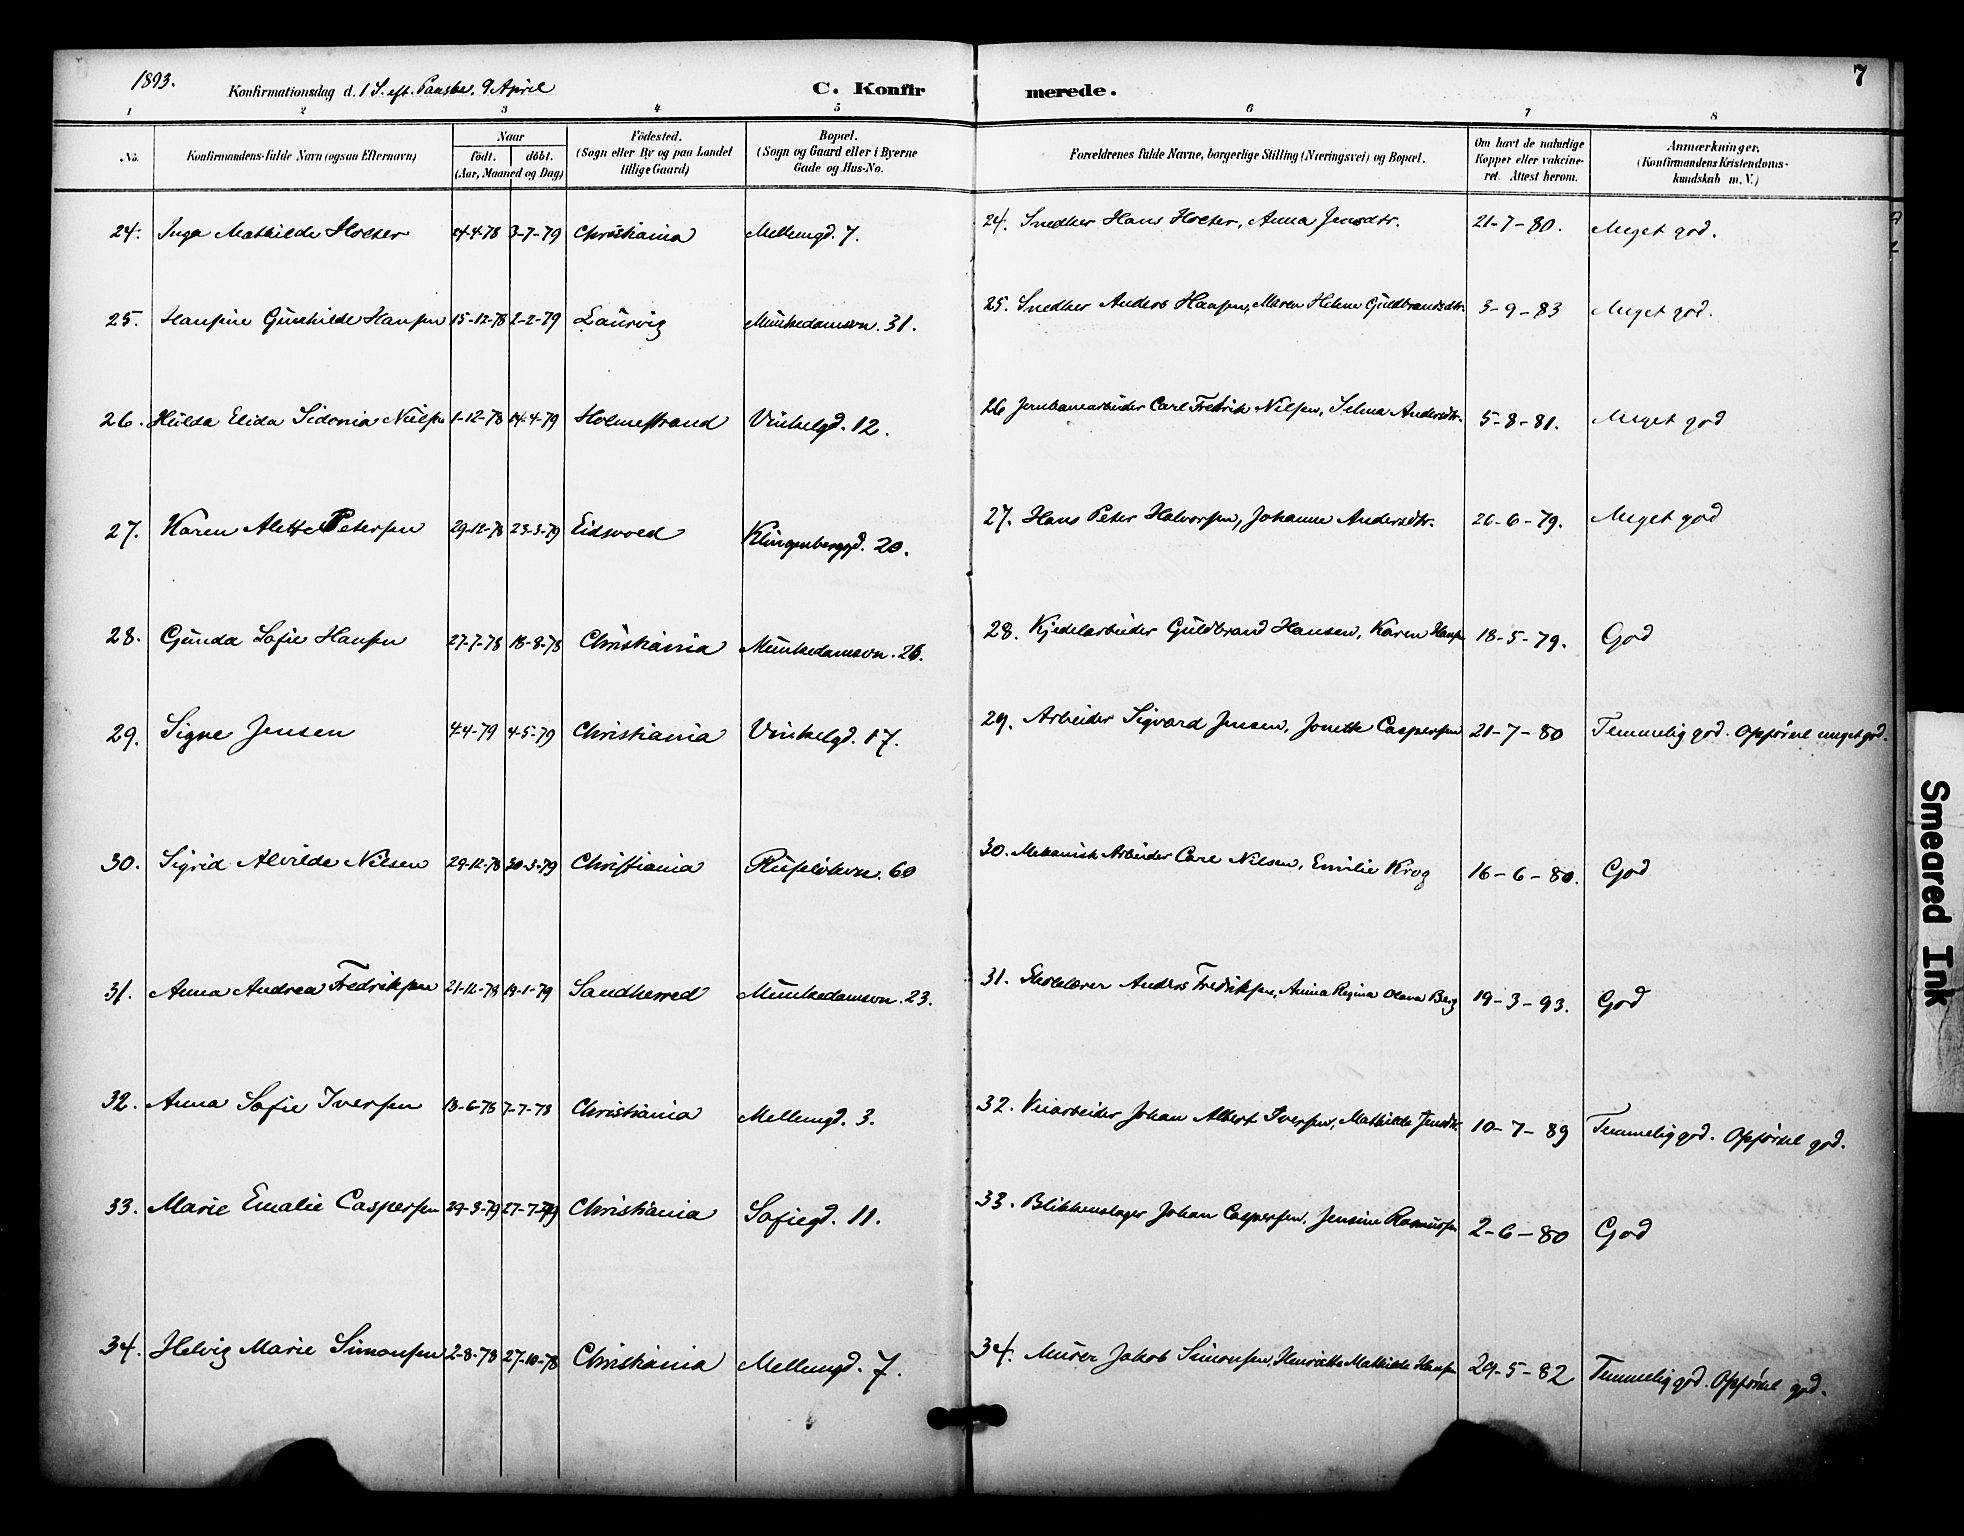 1893. Konfirmationsdag d. 1 S. eft. Paaske. 9 April C. Konfirmerede. 7
1 2 3 4 5 6 7 8
No. Konfirmandens fulde Navn (ogsaa Efternavn) Naar født. døbt. (Aar, Maaned og Dag) Fødested. (Sogn eller By og paa Landet tillige Gaard) Bopæl. (Sogn og Gaard eller i Byerne Gade og Hus-No. Forældrenes fulde Navne, borgerlige Stilling (Næringsvei) og Bopæl. Om havt de naturlige Kopper eller vakcineret. Attest herom. Anmærkninger. (Konfirmandens Kristendomskundskab m. V.)
24. Inga Mathilde Holter 3-7-79 Christiania Mellemgd. 7. 24. Snedker Hans Holter, Anna Jensdtr. 21-7-80. Meget god.
25. Hansine Gunhilde Hansen 15-12-78 2-2-79 Laurvig Munkedamsvn. 31. 25. Snedker Anders Hansen, Maren Helene Guldbrandsdtr. 3-9-83 Meget god.
26. Hulda Elida Sidonia Nielsen 1-12-78 14-4-79 Holmestrand Vinkelgd. 12. 26 Jernbanearbeider Carl Fredrik Nilsen, Selma Andersdtr. 5-8-81. Meget god
27. Karen Alette Petersen 29-12-78 23-3-79 Eidsvold Klingenberggd. 20. 27. Hans Peter Halvorsen, Johanne Andersdtr. 26-6-79. Meget god
28. Gunda Sofie Hansen 27-7-78 18-8-78 Christiania Munkedamsvn. 26. 28. Kjedelarbeider Guldbrand Hansen, Karen Hansen 18-5-79. God
29. Signe Jensen 4-4-79 4-5-79 Christiania Vinkelgd. 17. 29. Arbeider Sigvard Jensen, Jonette Caspersen 21-7-80 Temmelig god. Opførsel meget god.
30. Sigrid Alvilde Nilsen 29-12-78 30-3-79 Christiania Ruseløkvn. 60 30. Mekanisk Arbeider Carl Nilsen, Emilie Krog 16-6-80. God
31. Anna Andrea Fredriksen 21-12-78 19-1-79 Sandherred Munkedamsvn. 23. 31. Skolelærer Anders Fredriksen, Anna Regina Olava Berg 19-3-93. God
32. Anna Sofie Iversen 13-6-78 7-7-78 Christiania Mellemgd. 3. 32. Veiarbeider Johan Albert Iversen, Mathilde Jensdtr. 10-7-89 Temmelig god. Opførsel god.
33. Marie Emalie Caspersen 29-3-79 27-7-79 Christiania Sofiegd. 11. 33. Blikkenslager Johan Caspersen, Jensine Rasmussen 2-6-80 God
34. Helvig Marie Simonsen 2-8-78 27-10-78 Christiania Mellemgd. 7. 34. Murer Jakob Simonsen, Henriette Mathilde Hansen 29-5-82 Temmelig god. Opførsel god.
Smeared Ink